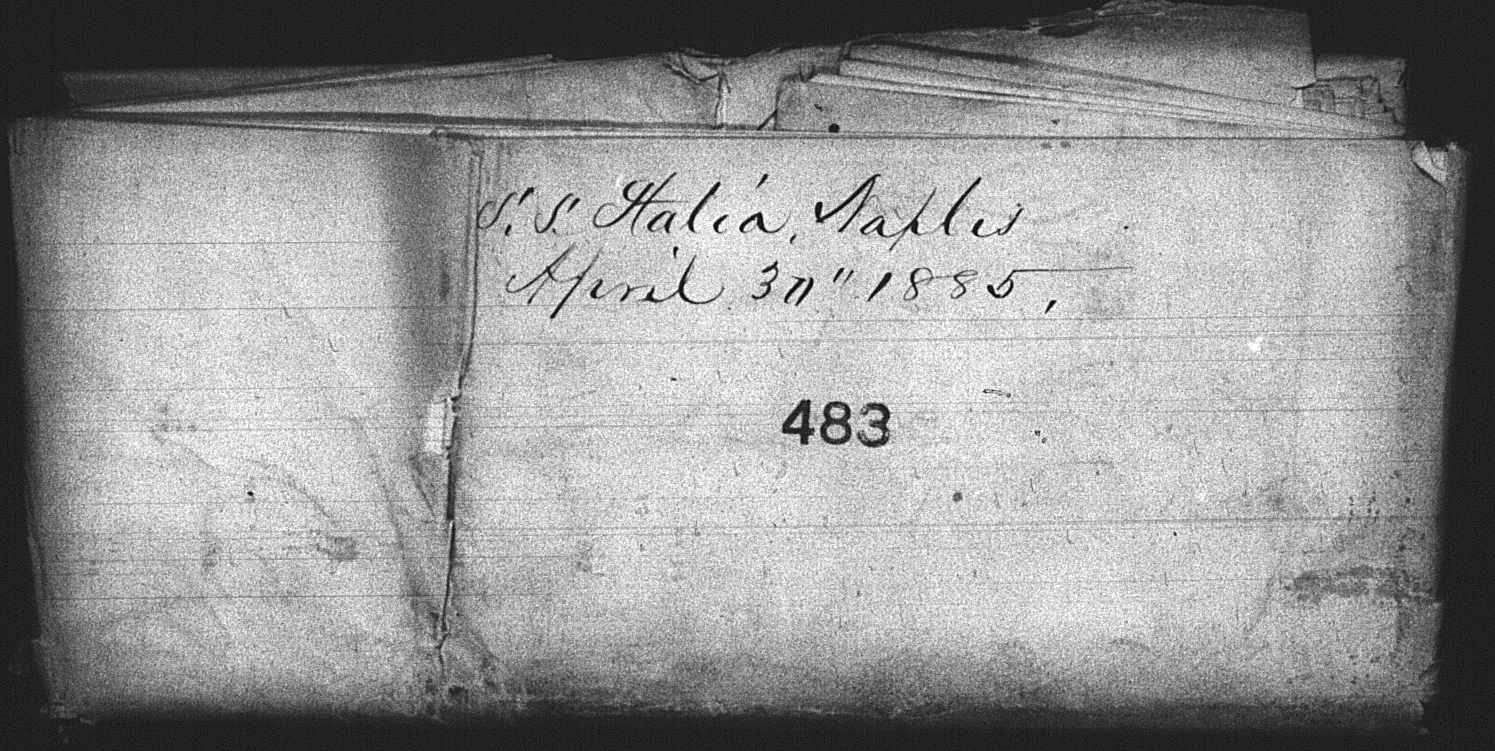 S.S. Italia, Naples
April 30" 1885,
483